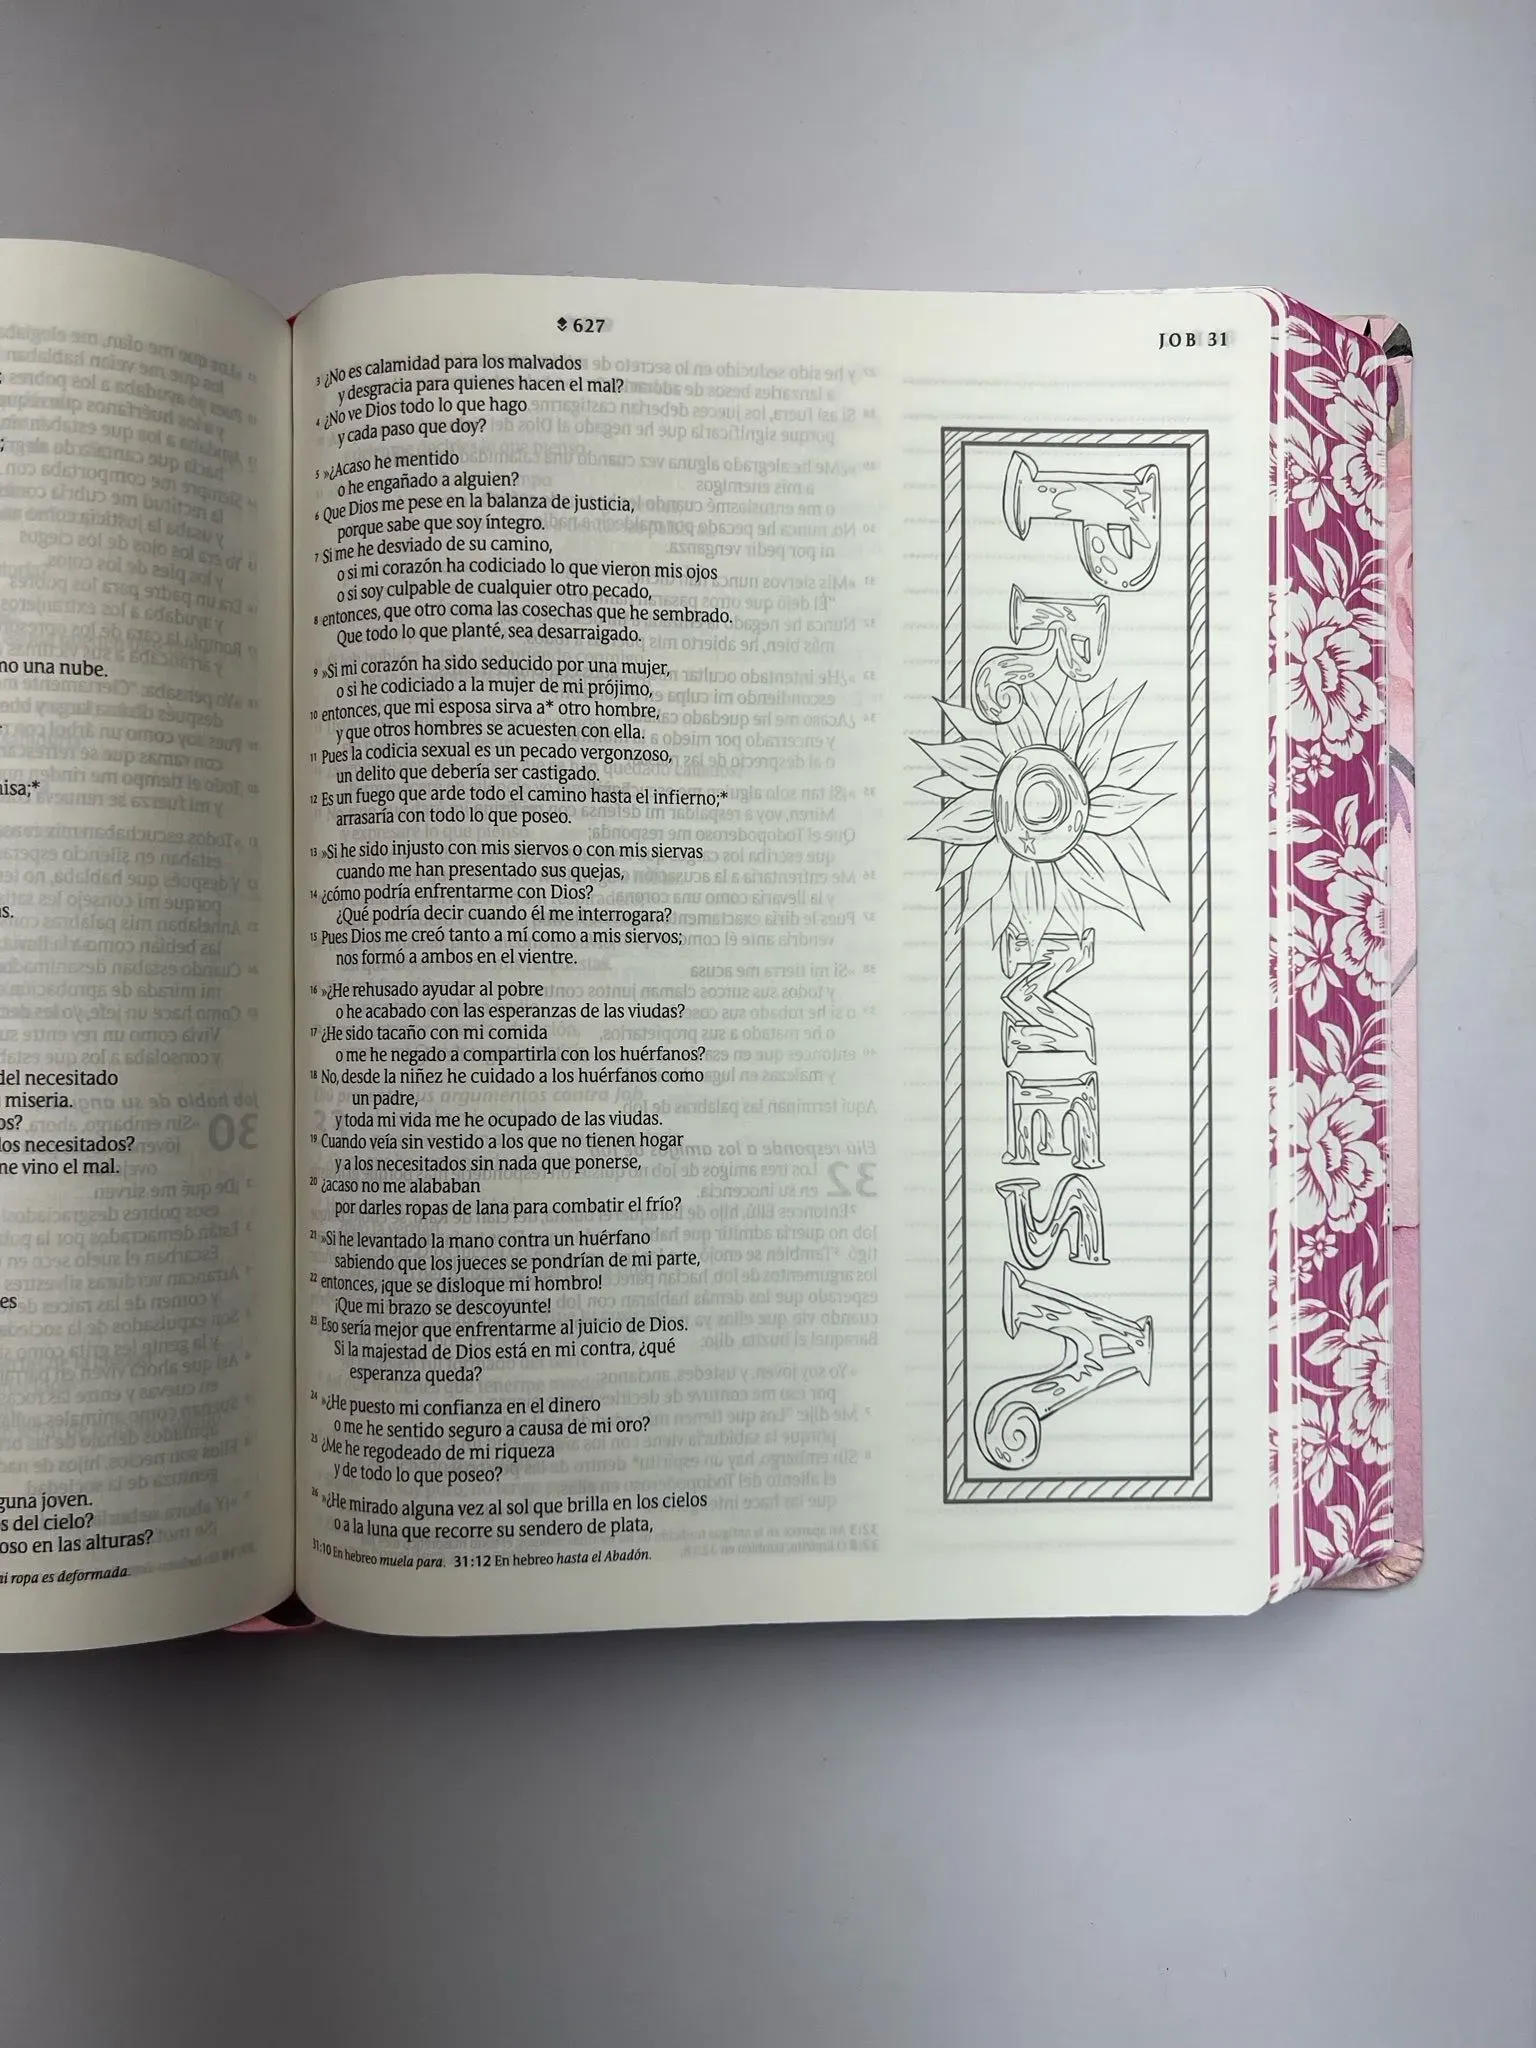 mo una nube.
isa;*
s.
del necesitado
miseria.
os?
los necesitados?
ne vino el mal.
es
guna joven.
s del cielo?
oso en las alturas?
ni ropa es deformada.
627
JOB 31
3 ¿No es calamidad para los malvados
y desgracia para quienes hacen el mal?
4 ¿No ve Dios todo lo que hago
y cada paso que doy?
5 »¿Acaso he mentido
o he engañado a alguien?
6 Que Dios me pese en la balanza de justicia,
porque sabe que soy íntegro.
7 Si me he desviado de su camino,
o si mi corazón ha codiciado lo que vieron mis ojos
o si soy culpable de cualquier otro pecado,
8 entonces, que otro coma las cosechas que he sembrado.
Que todo lo que planté, sea desarraigado.
9 »Si mi corazón ha sido seducido por una mujer,
o si he codiciado a la mujer de mi prójimo,
10 entonces, que mi esposa sirva a* otro hombre,
y que otros hombres se acuesten con ella.
11 Pues la codicia sexual es un pecado vergonzoso,
un delito que debería ser castigado.
12 Es un fuego que arde todo el camino hasta el infierno;*
arrasaría con todo lo que poseo.
13 »Si he sido injusto con mis siervos o con mis siervas
cuando me han presentado sus quejas,
14 ¿cómo podría enfrentarme con Dios?
¿Qué podría decir cuando él me interrogara?
15 Pues Dios me creó tanto a mí como a mis siervos;
nos formó a ambos en el vientre.
16 »¿He rehusado ayudar al pobre
o he acabado con las esperanzas de las viudas?
17 ¿He sido tacaño con mi comida
o me he negado a compartirla con los huérfanos?
18 No, desde la niñez he cuidado a los huérfanos como
un padre,
y toda mi vida me he ocupado de las viudas.
19 Cuando veía sin vestido a los que no tienen hogar
y a los necesitados sin nada que ponerse,
20 ¿acaso no me alababan
por darles ropas de lana para combatir el frío?
21 »Si he levantado la mano contra un huérfano
sabiendo que los jueces se pondrían de mi parte,
22 entonces, ¡que se disloque mi hombro!
¡Que mi brazo se descoyunte!
23 Eso sería mejor que enfrentarme al juicio de Dios.
Si la majestad de Dios está en mi contra, ¿qué
esperanza queda?
24 »¿He puesto mi confianza en el dinero
o me he sentido seguro a causa de mi oro?
25 ¿Me he regodeado de mi riqueza
y de todo lo que poseo?
26 »¿He mirado alguna vez al sol que brilla en los cielos
o a la luna que recorre su sendero de plata,
31:10 En hebreo muela para. 31:12 En hebreo hasta el Abadón.
PROMESA